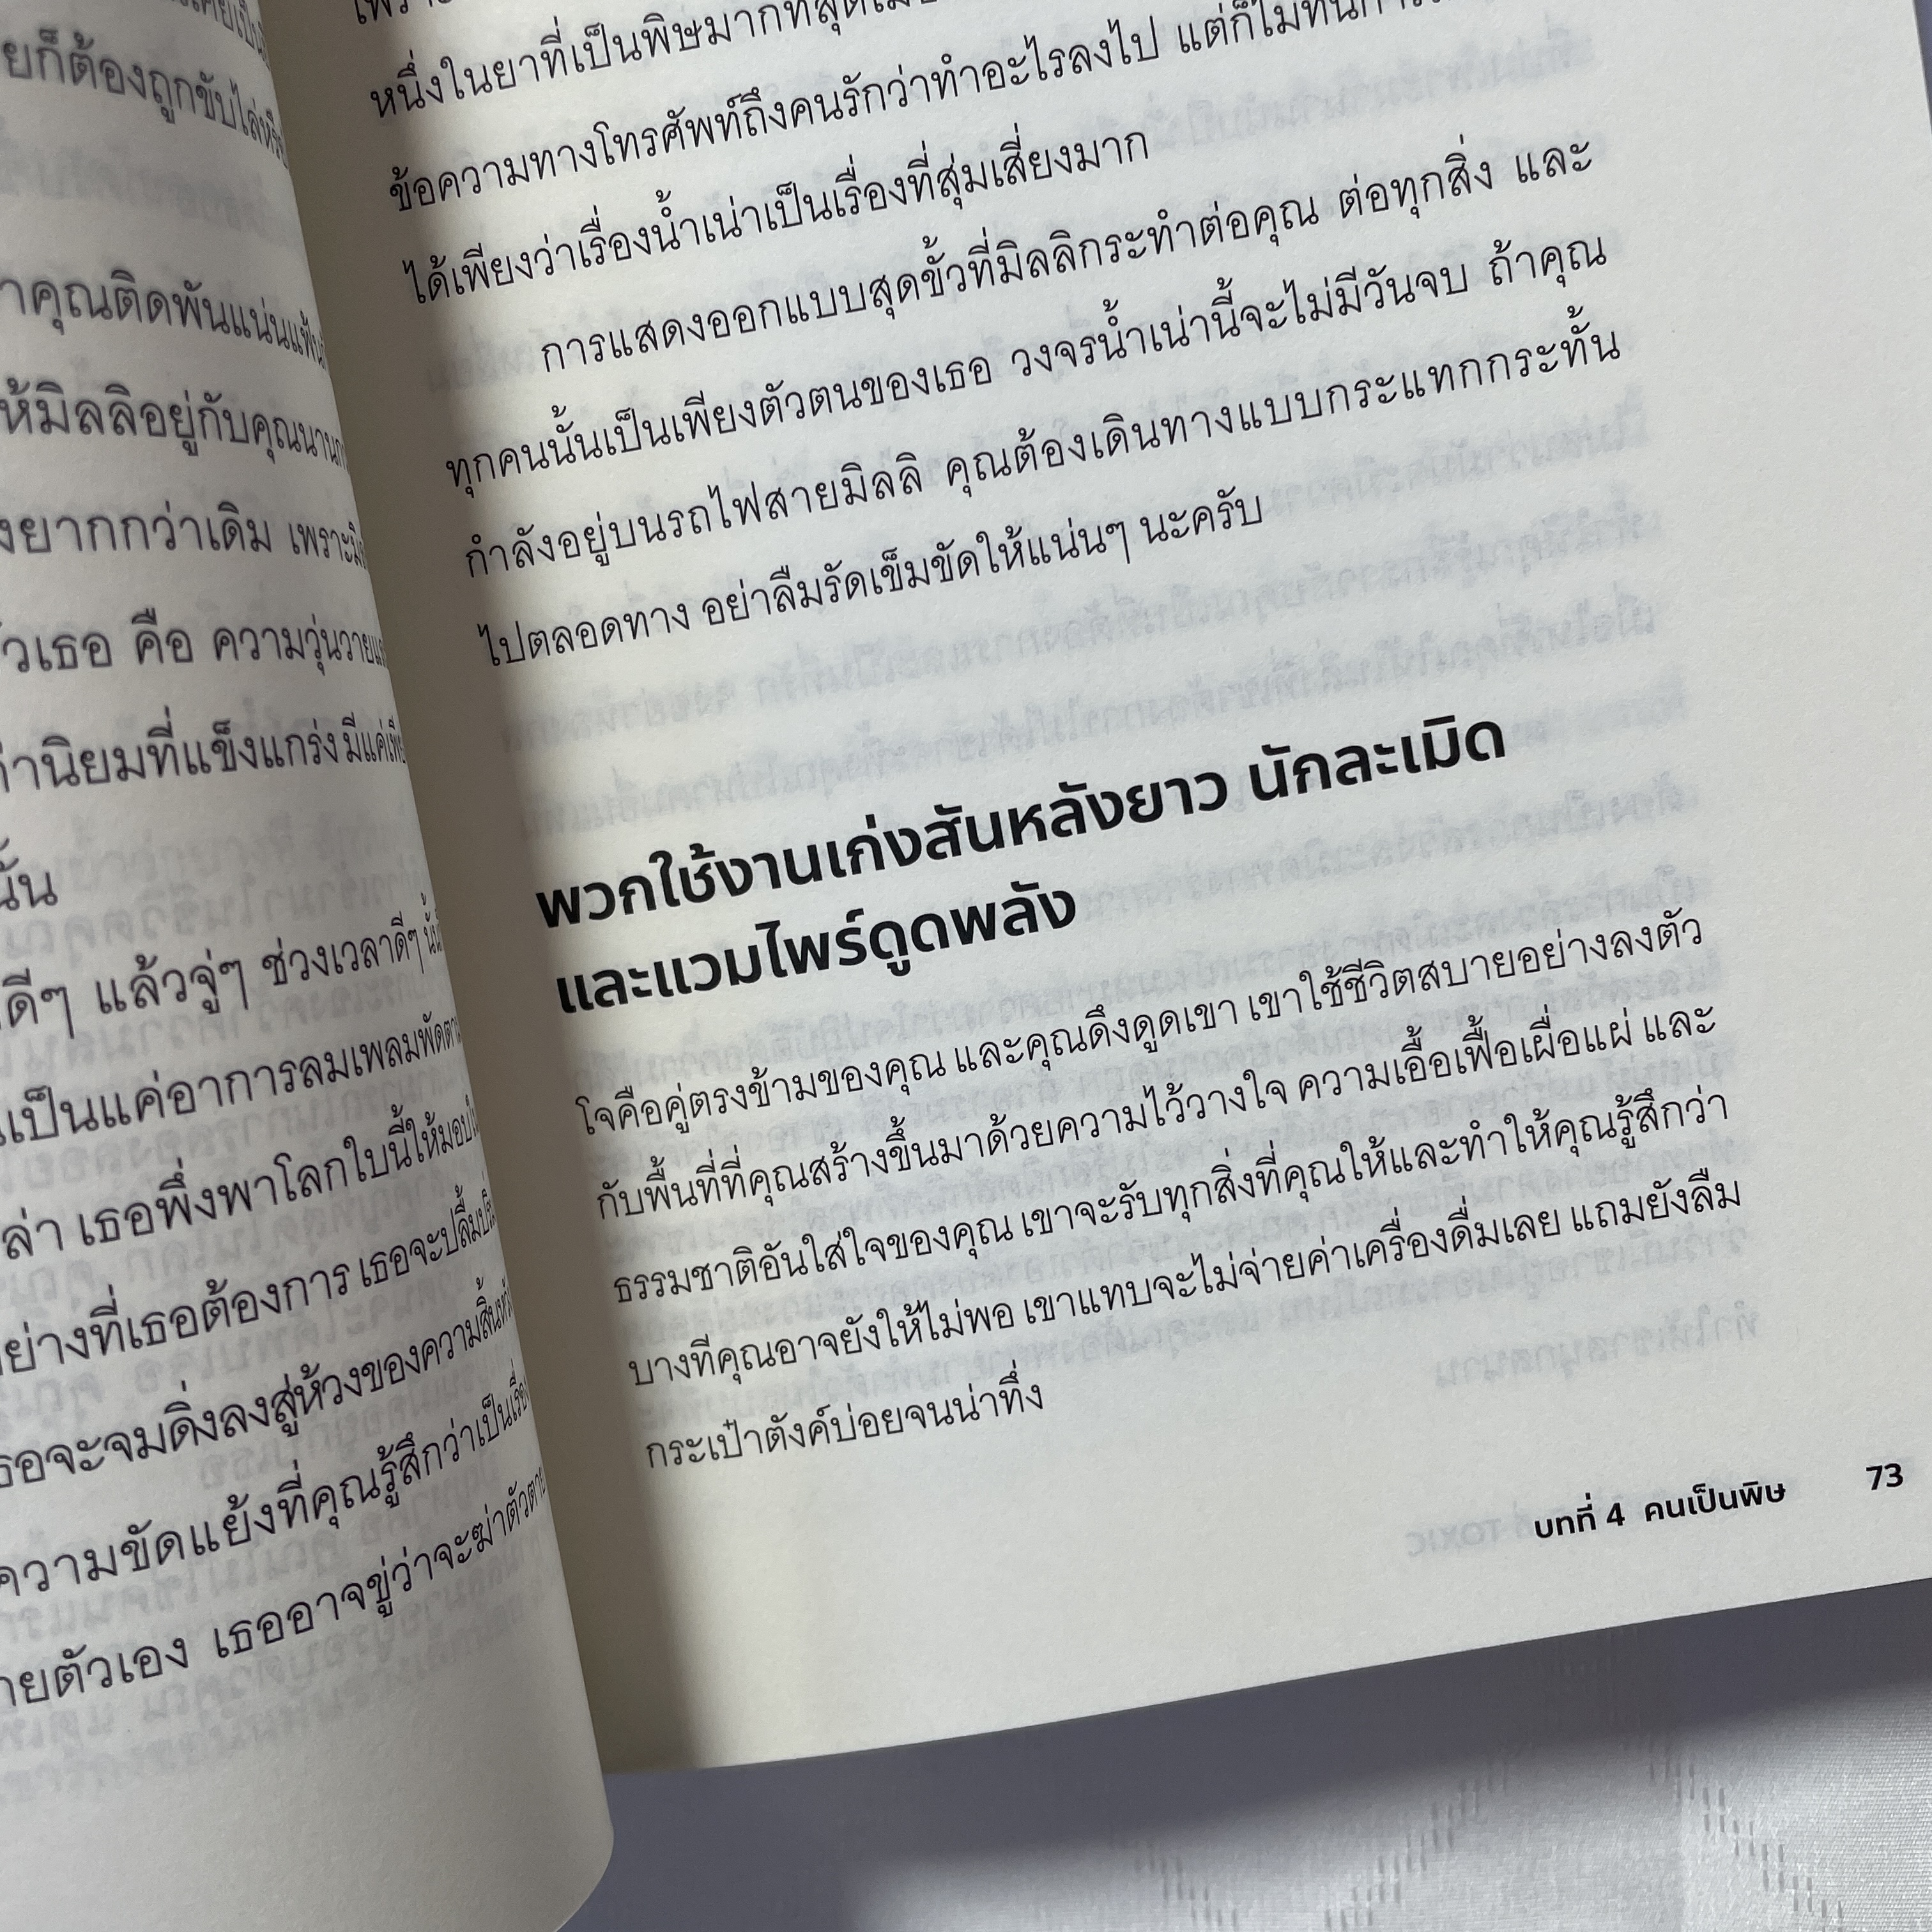 ยก็ต้องถูกขับไล่
คุณติดพันแน่นแฟ้น
ห้มิลลิอยู่กับคุณนาน
ยากกว่าเดิม เพราะ
วเธอ คือ ความวุ่นวาย
นิยมที่แข็งแกร่ง มีแค่เพีย
นั้น
ดีๆ แล้วจู่ๆ ช่วงเวลาดีๆ นั้น
เป็นแค่อาการลมเพลมพัด
ล่า เธอพึ่งพาโลกใบนี้ให้มอบ
ย่างที่เธอต้องการ เธอจะปลื้มปริ่
ธอจะจมดิ่งลงสู่ห้วงของความสิ้นหวั
ความขัดแย้งที่คุณรู้สึกว่าเป็นเรื่อง
ายตัวเอง เธออาจขู่ว่าจะฆ่าตัวตาย
หนึ่งในยาที่เป็นพิษมากที่สุด
ข้อความทางโทรศัพท์ถึงคนรักว่าทำอะไรลงไป แต่ก็ไม่ทันการ
ได้เพียงว่าเรื่องน้ำเน่าเป็นเรื่องที่สุ่มเสี่ยงมาก
การแสดงออกแบบสุดขั้วที่มิลลิกระทำต่อคุณ ต่อทุกสิ่ง และ
ทุกคนนั้นเป็นเพียงตัวตนของเธอ วงจรน้ำเน่านี้จะไม่มีวันจบ ถ้าคุณ
กำลังอยู่บนรถไฟสายมิลลิ คุณต้องเดินทางแบบกระแทกกระทั้น
ไปตลอดทาง อย่าลืมรัดเข็มขัดให้แน่นๆ นะครับ
พวกใช้งานเก่งสันหลังยาว นักละเมิด
และแวมไพร์ดูดพลัง
โจคือคู่ตรงข้ามของคุณ และคุณดึงดูดเขา เขาใช้ชีวิตสบายอย่างลงตัว
กับพื้นที่ที่คุณสร้างขึ้นมาด้วยความไว้วางใจ ความเอื้อเฟื้อเผื่อแผ่ และ
ธรรมชาติอันใส่ใจของคุณ เขาจะรับทุกสิ่งที่คุณให้และทำให้คุณรู้สึกว่า
บางทีคุณอาจยังให้ไม่พอ เขาแทบจะไม่จ่ายค่าเครื่องดื่มเลย แถมยังลืม
กระเป๋าตังค์บ่อยจนน่าทึ่ง
บทที่ 4 คนเป็นพิษ 73